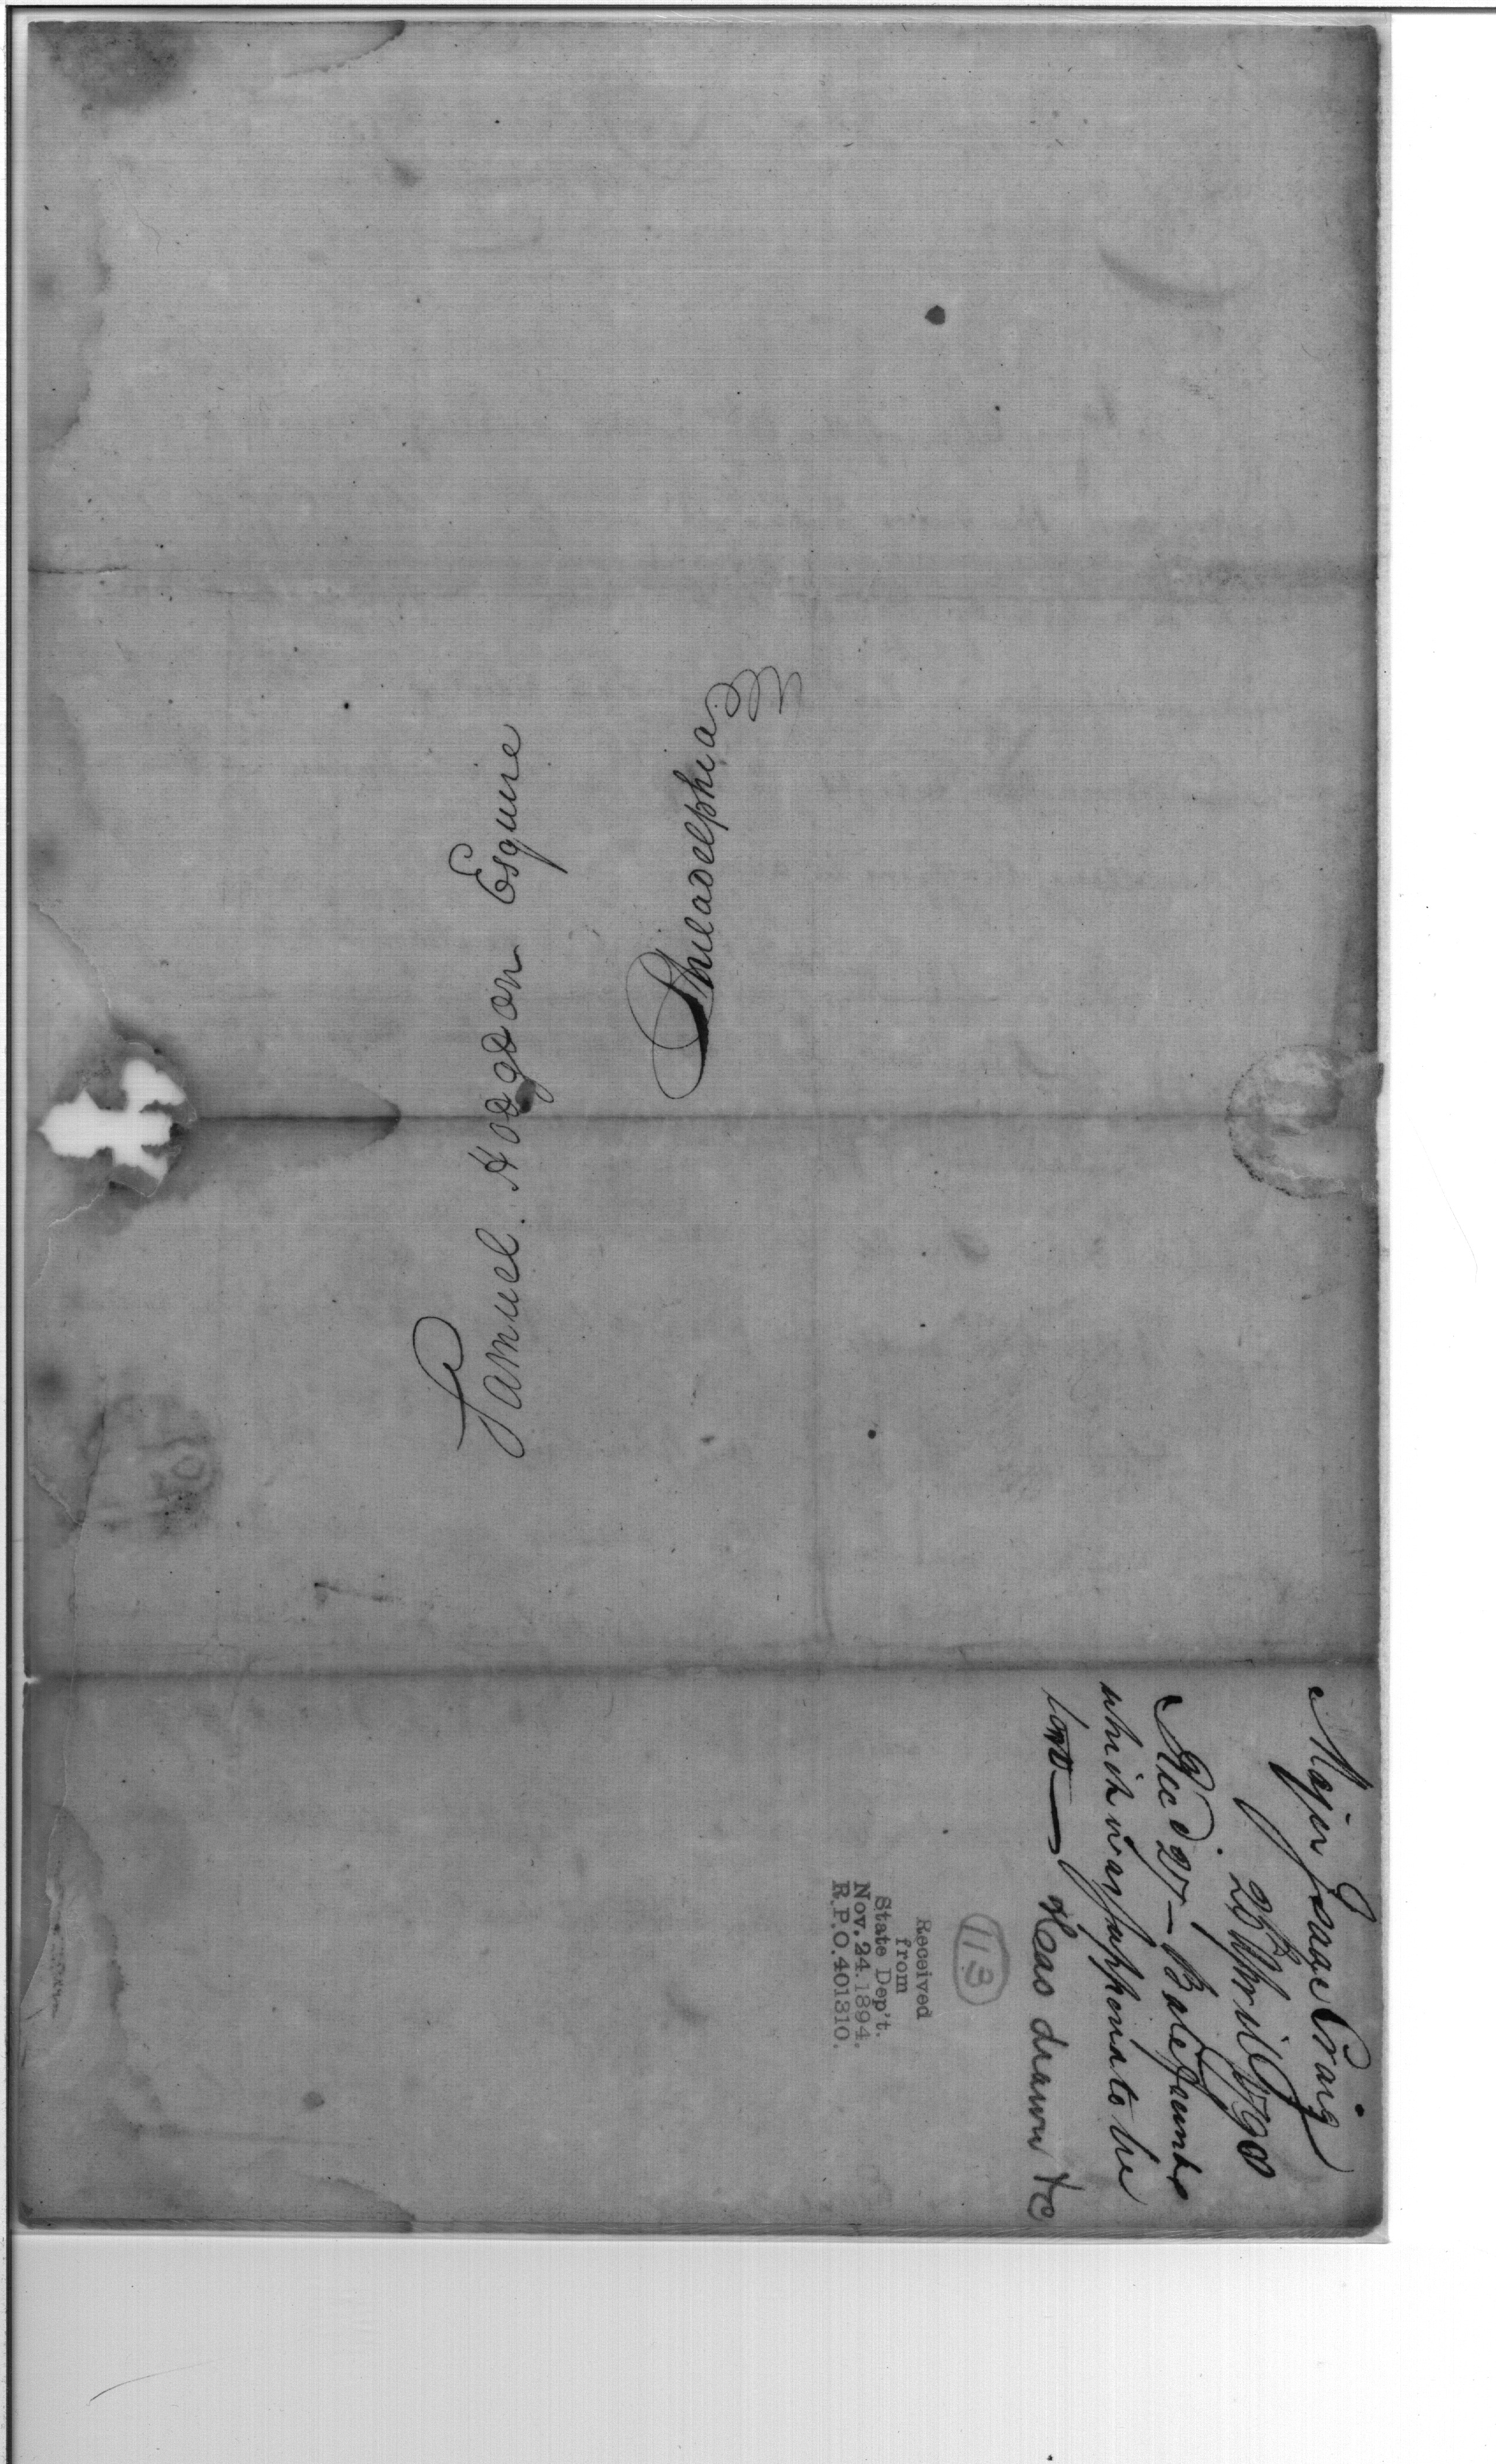 Samuel Hodgdon Esquire
Philadelphia
Major Isaac Craig
25 April 1790
Recd 27 — Bale found
which was supposed to be
lost — Has drawn &c
113
Received
from
State Dep't.
Nov. 24. 1894.
R.P.O. 401310.